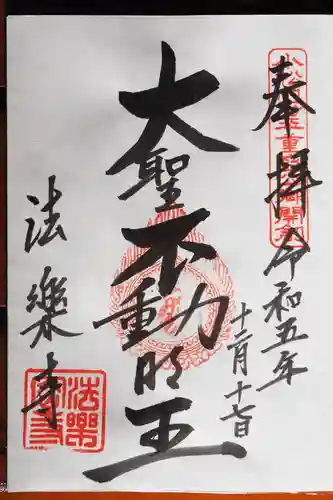 奉拝
令和五年
十二月十七日
大聖不動明王
法楽寺
法樂寺印